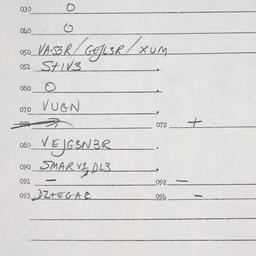 030 O
040 O
050 VASBR/GEJLSR/XUM
051 S+IV3 .
060 O .
070 VUGN .
072 +
080 VEJGSN3R .
090 SMARVI, DL3 .
091 – 092 –
093 096 –